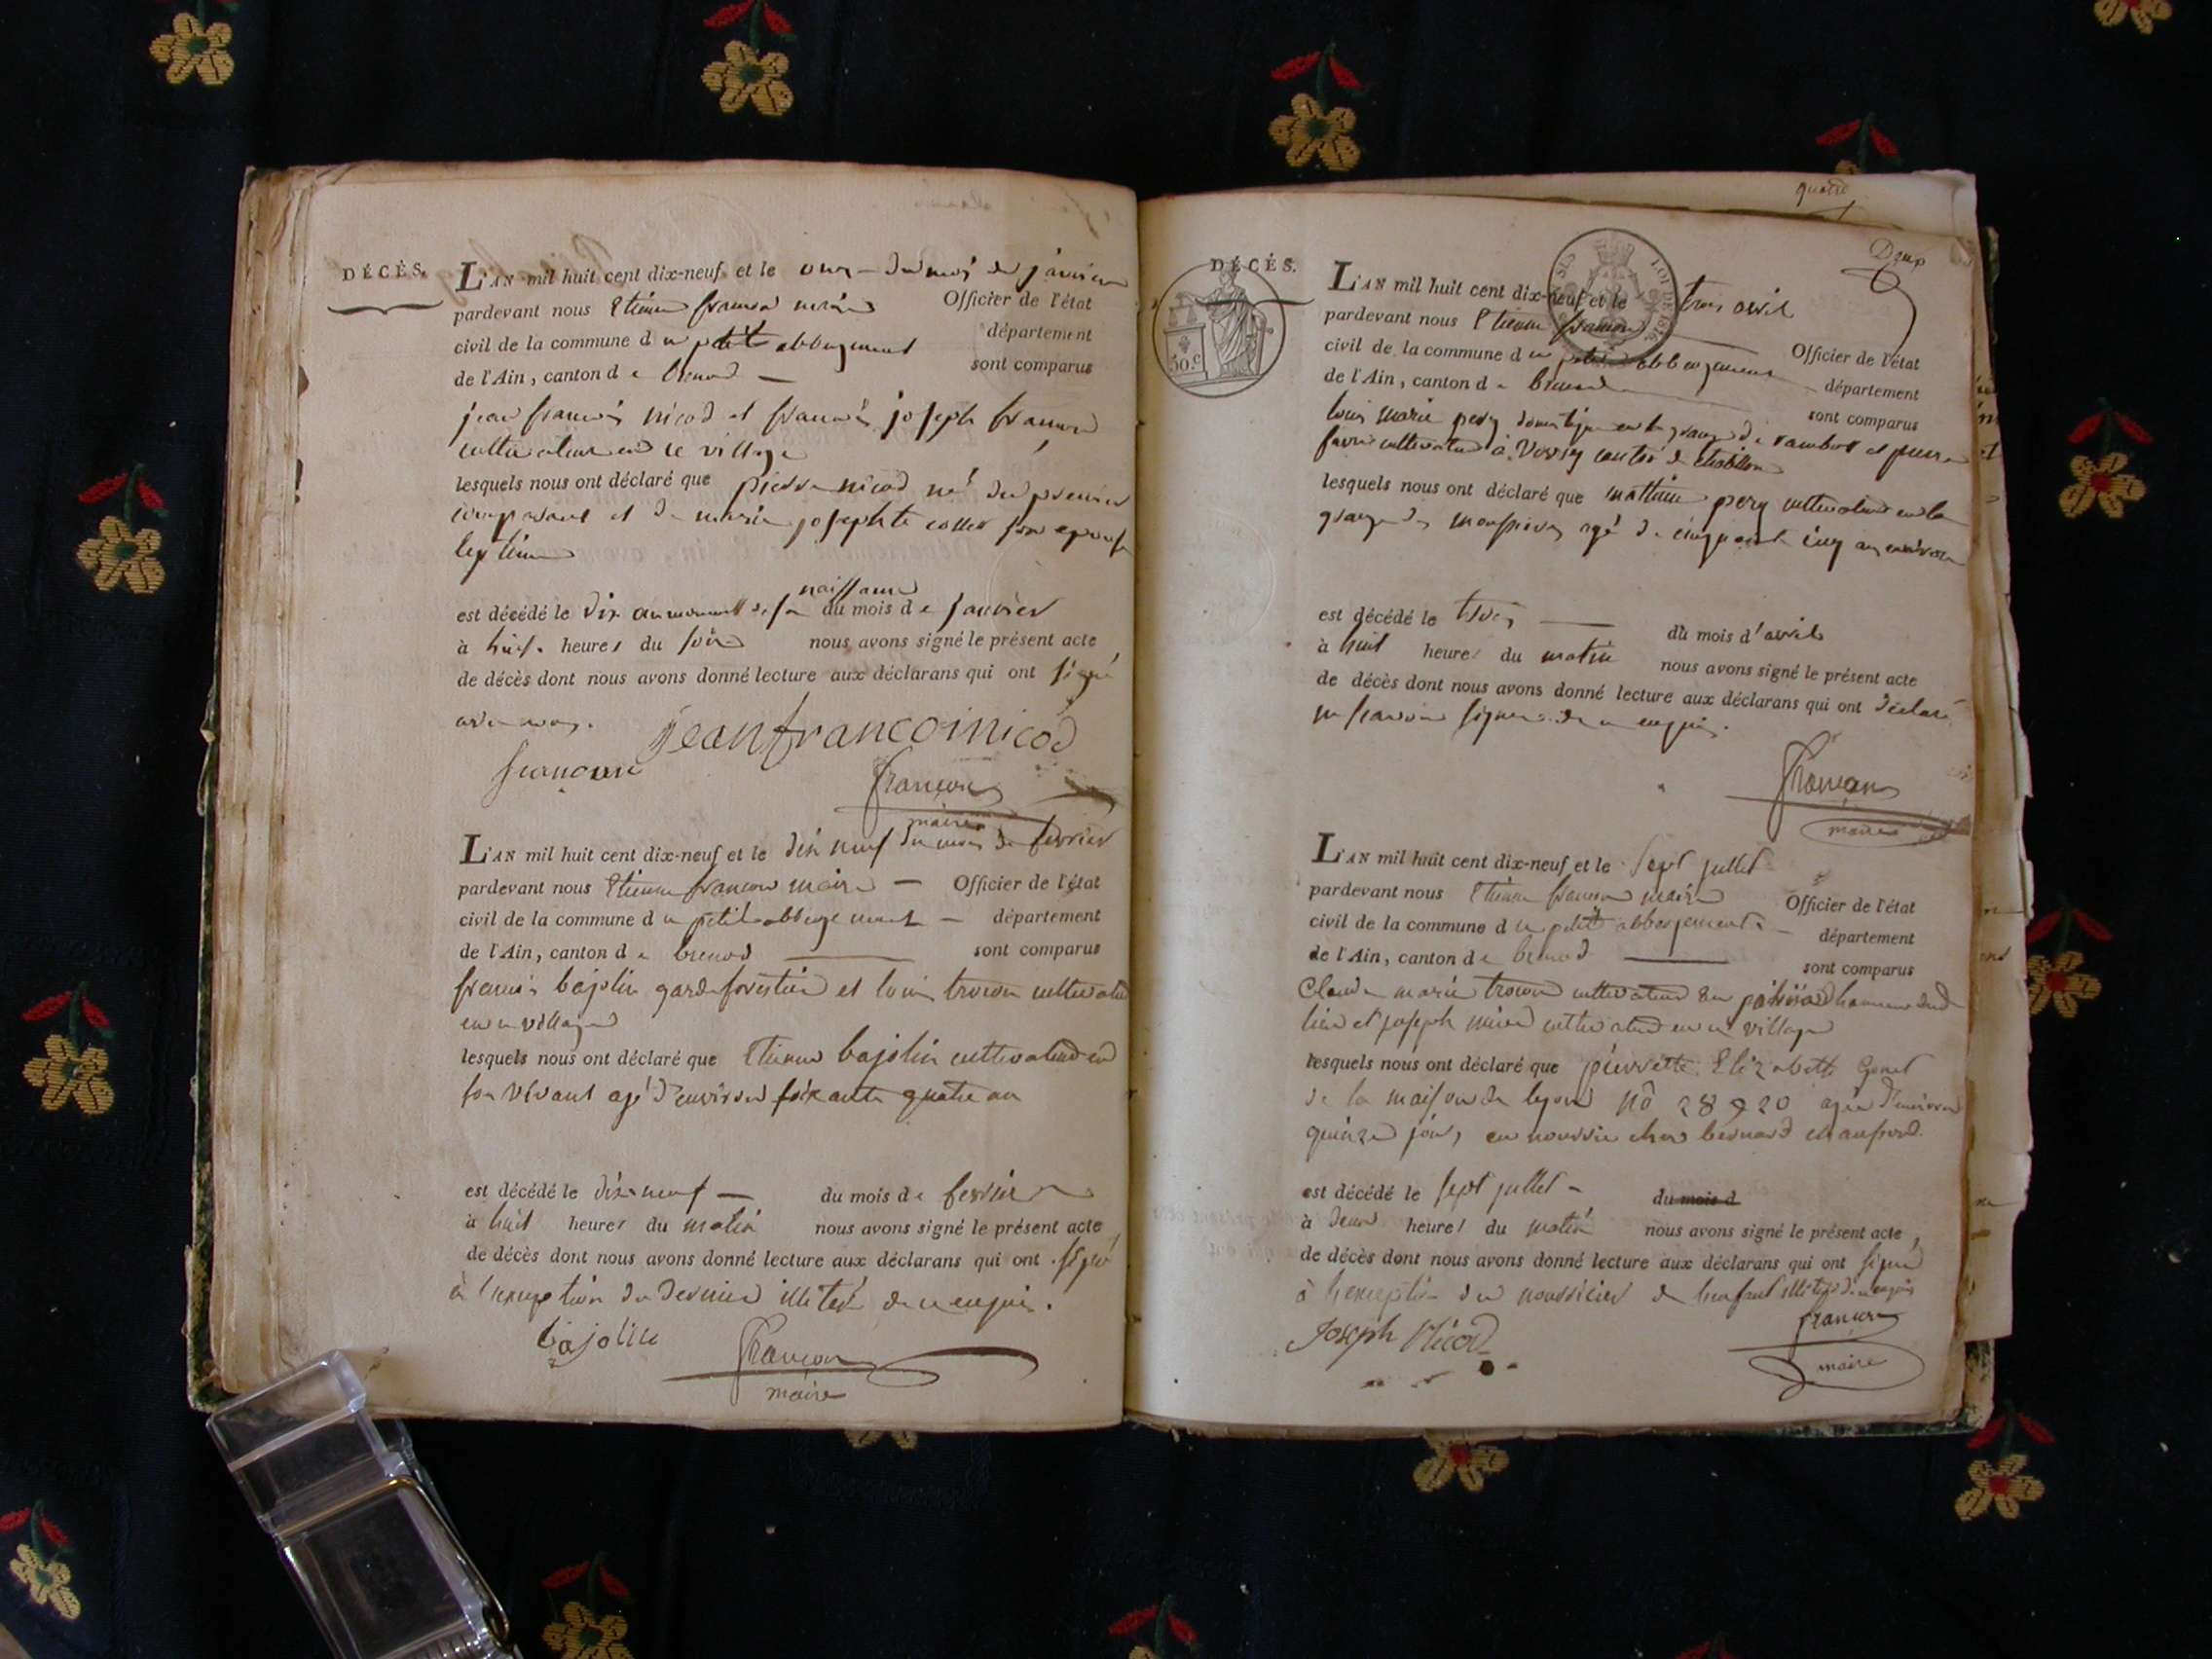 DÉCÈS.
L'AN mil huit cent dix-neuf et le onze du mois de janvier
pardevant nous Etienne françon maire Officier de l'état
civil de la commune d u petit abbergement département
de l'Ain, canton d e brenod sont comparus
jean françois nicod et françois joseph françon
cultivateur en ce village
lesquels nous ont déclaré que pierre nicod né du premier
comparant et de marie josephte collet son epouse
legitime
naissance
est décédé le dix au moment de sa du mois d e janvier
à huit heures du soir nous avons signé le présent acte
de décès dont nous avons donné lecture aux déclarans qui ont signé
avec nous.
jeanfrancoinicod
françon
françon
maire
L'AN mil huit cent dix-neuf et le dix neuf du mois de fevrier
pardevant nous Etienne françon maire Officier de l'état
civil de la commune d u petit abbergement département
de l'Ain, canton d e brenod sont comparus
françois bajolin garde forestier et louis trocon cultivateur
en ce village
lesquels nous ont déclaré que Etienne bajolin cultivateur en
son vivant agé d'environ soixante quatre an
est décédé le dix neuf du mois d e fevrier
à huit heures du matin nous avons signé le présent acte,
de décès dont nous avons donné lecture aux déclarans qui ont signé
à l'exception du dernier illiteré de ce enquis.
bajolin
françon
maire
quatre
Deux
DÉCÈS.
50.c
LOI DE 1816
L'AN mil huit cent dix-neuf et le trois avril
pardevant nous Etienne françon Officier de l'état
civil de la commune d u petit abbergement département
de l'Ain, canton d e brenod sont comparus
louis marie pery domestique en la grange de rambot et pierre
favre cultivateur à canton de
lesquels nous ont déclaré que mathieu pery cultivateur en la
grange des agé de cinquante cinq ans environ
est décédé le trois du mois d'avril
à huit heures du matin nous avons signé le présent acte
de décès dont nous avons donné lecture aux déclarans qui ont déclaré
ne scavoir signer de ce enquis.
françon
maire
L'AN mil huit cent dix-neuf et le sept jullet
pardevant nous Etienne françon maire Officier de l'état
civil de la commune d u petit abbergement département
de l'Ain, canton d e brenod sont comparus
Claude marie trocon cultivateur au hameau dud
lieu et joseph nicod cultivateur en ce village
lesquels nous ont déclaré que pierrette Elizabette Gonet
de la maison de lyon nô 28920 agée d'environ
quinze jours, en nourrice chez bernard
est décédé le sept jullet du mois d
à deux heures du matin nous avons signé le présent acte,
de décès dont nous avons donné lecture aux déclarans qui ont signé
à l'exception du nourricier de l'enfant illiteré de ce enquis
Joseph Nicod
françon
maire